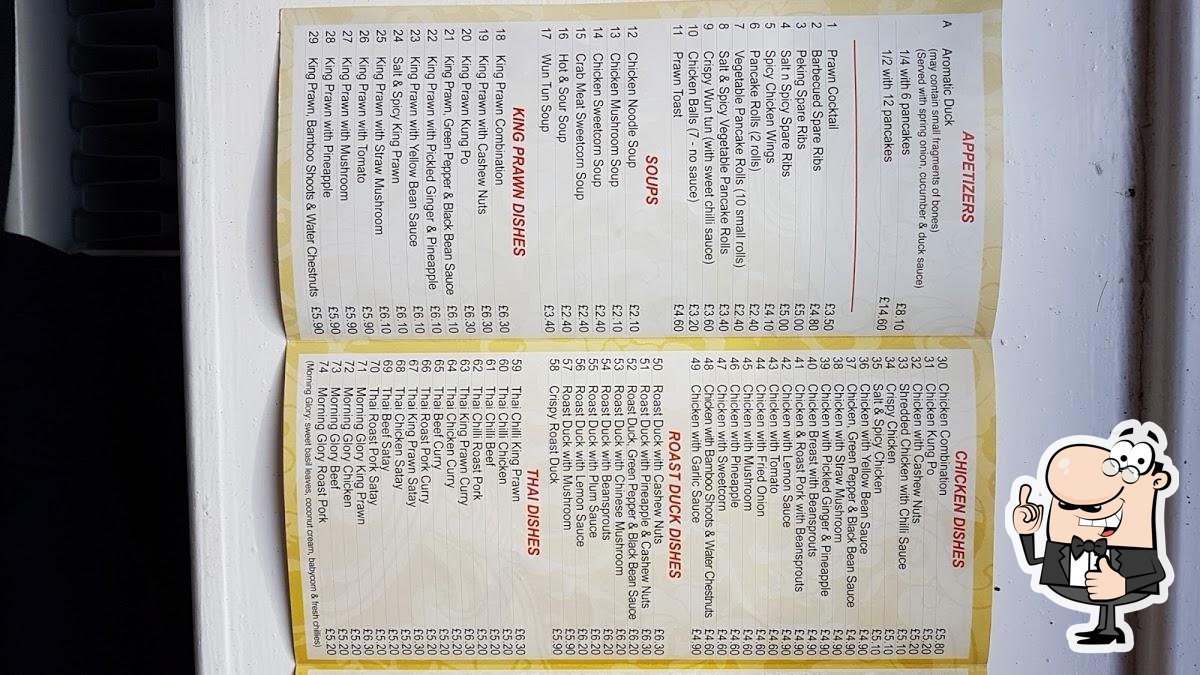 APPETIZERS
A Aromatic Duck
(may contain small fragments of bones)
(Served with spring onion, cucumber & duck sauce)
1/4 with 6 pancakes £8.10
1/2 with 12 pancakes £14.60
1 Prawn Cocktail £3.50
2 Barbecued Spare Ribs £4.80
3 Peking Spare Ribs £5.00
4 Salt n Spicy Spare Ribs £5.00
5 Spicy Chicken Wings £4.10
6 Pancake Rolls (2 rolls) £2.40
7 Vegetable Pancake Rolls (10 small rolls) £2.40
8 Salt & Spicy Vegetable Pancake Rolls £3.40
9 Crispy Wun tun (with sweet chilli sauce) £3.60
10 Chicken Balls (7 - no sauce) £3.20
11 Prawn Toast £4.60
SOUPS
12 Chicken Noodle Soup £2.10
13 Chicken Mushroom Soup £2.10
14 Chicken Sweetcorn Soup £2.40
15 Crab Meat Sweetcorn Soup £2.40
16 Hot & Sour Soup £2.40
17 Wun Tun Soup £3.40
KING PRAWN DISHES
18 King Prawn Combination £6.30
19 King Prawn with Cashew Nuts £6.30
20 King Prawn Kung Po £6.30
21 King Prawn, Green Pepper & Black Bean Sauce £6.10
22 King Prawn with Pickled Ginger & Pineapple £6.10
23 King Prawn with Yellow Bean Sauce £6.10
24 Salt & Spicy King Prawn £6.10
25 King Prawn with Straw Mushroom £6.10
26 King Prawn with Tomato £5.90
27 King Prawn with Mushroom £5.90
28 King Prawn with Pineapple £5.90
29 King Prawn, Bamboo Shoots & Water Chestnuts £5.90
CHICKEN DISHES
30 Chicken Combination £5.80
31 Chicken Kung Po £5.20
32 Chicken with Cashew Nuts £5.20
33 Shredded Chicken with Chilli Sauce £5.10
34 Crispy Chicken £5.10
35 Salt & Spicy Chicken £5.10
36 Chicken with Yellow Bean Sauce £4.90
37 Chicken, Green Pepper & Black Bean Sauce £4.90
38 Chicken with Straw Mushroom £4.90
39 Chicken with Pickled Ginger & Pineapple £4.90
40 Chicken Breast with Beansprouts £4.90
41 Chicken & Roast Pork with Beansprouts £4.90
42 Chicken with Lemon Sauce £4.90
43 Chicken with Tomato £4.60
44 Chicken with Fried Onion £4.60
45 Chicken with Mushroom £4.60
46 Chicken with Pineapple £4.60
47 Chicken with Sweetcorn £4.60
48 Chicken with Bamboo Shoots & Water Chestnuts £4.60
49 Chicken with Garlic Sauce £4.90
ROAST DUCK DISHES
50 Roast Duck with Cashew Nuts £6.30
51 Roast Duck with Pineapple & Cashew Nuts £6.30
52 Roast Duck, Green Pepper & Black Bean Sauce £6.20
53 Roast Duck with Chinese Mushroom £6.20
54 Roast Duck with Beansprouts £6.20
55 Roast Duck with Plum Sauce £6.20
56 Roast Duck with Lemon Sauce £6.20
57 Roast Duck with Mushroom £5.90
58 Crispy Roast Duck £5.90
THAI DISHES
59 Thai Chilli King Prawn £6.30
60 Thai Chilli Chicken £5.20
61 Thai Chilli Beef £5.20
62 Thai Chilli Roast Pork £5.20
63 Thai King Prawn Curry £6.30
64 Thai Chicken Curry £5.20
65 Thai Beef Curry £5.20
66 Thai Roast Pork Curry £5.20
67 Thai King Prawn Satay £6.30
68 Thai Chicken Satay £5.20
69 Thai Beef Satay £5.20
70 Thai Roast Pork Satay £5.20
71 Morning Glory King Prawn £6.30
72 Morning Glory Chicken £5.20
73 Morning Glory Beef £5.20
74 Morning Glory Roast Pork £5.20
(Morning Glory: sweet basil leaves, coconut cream, babycorn & fresh chillies)